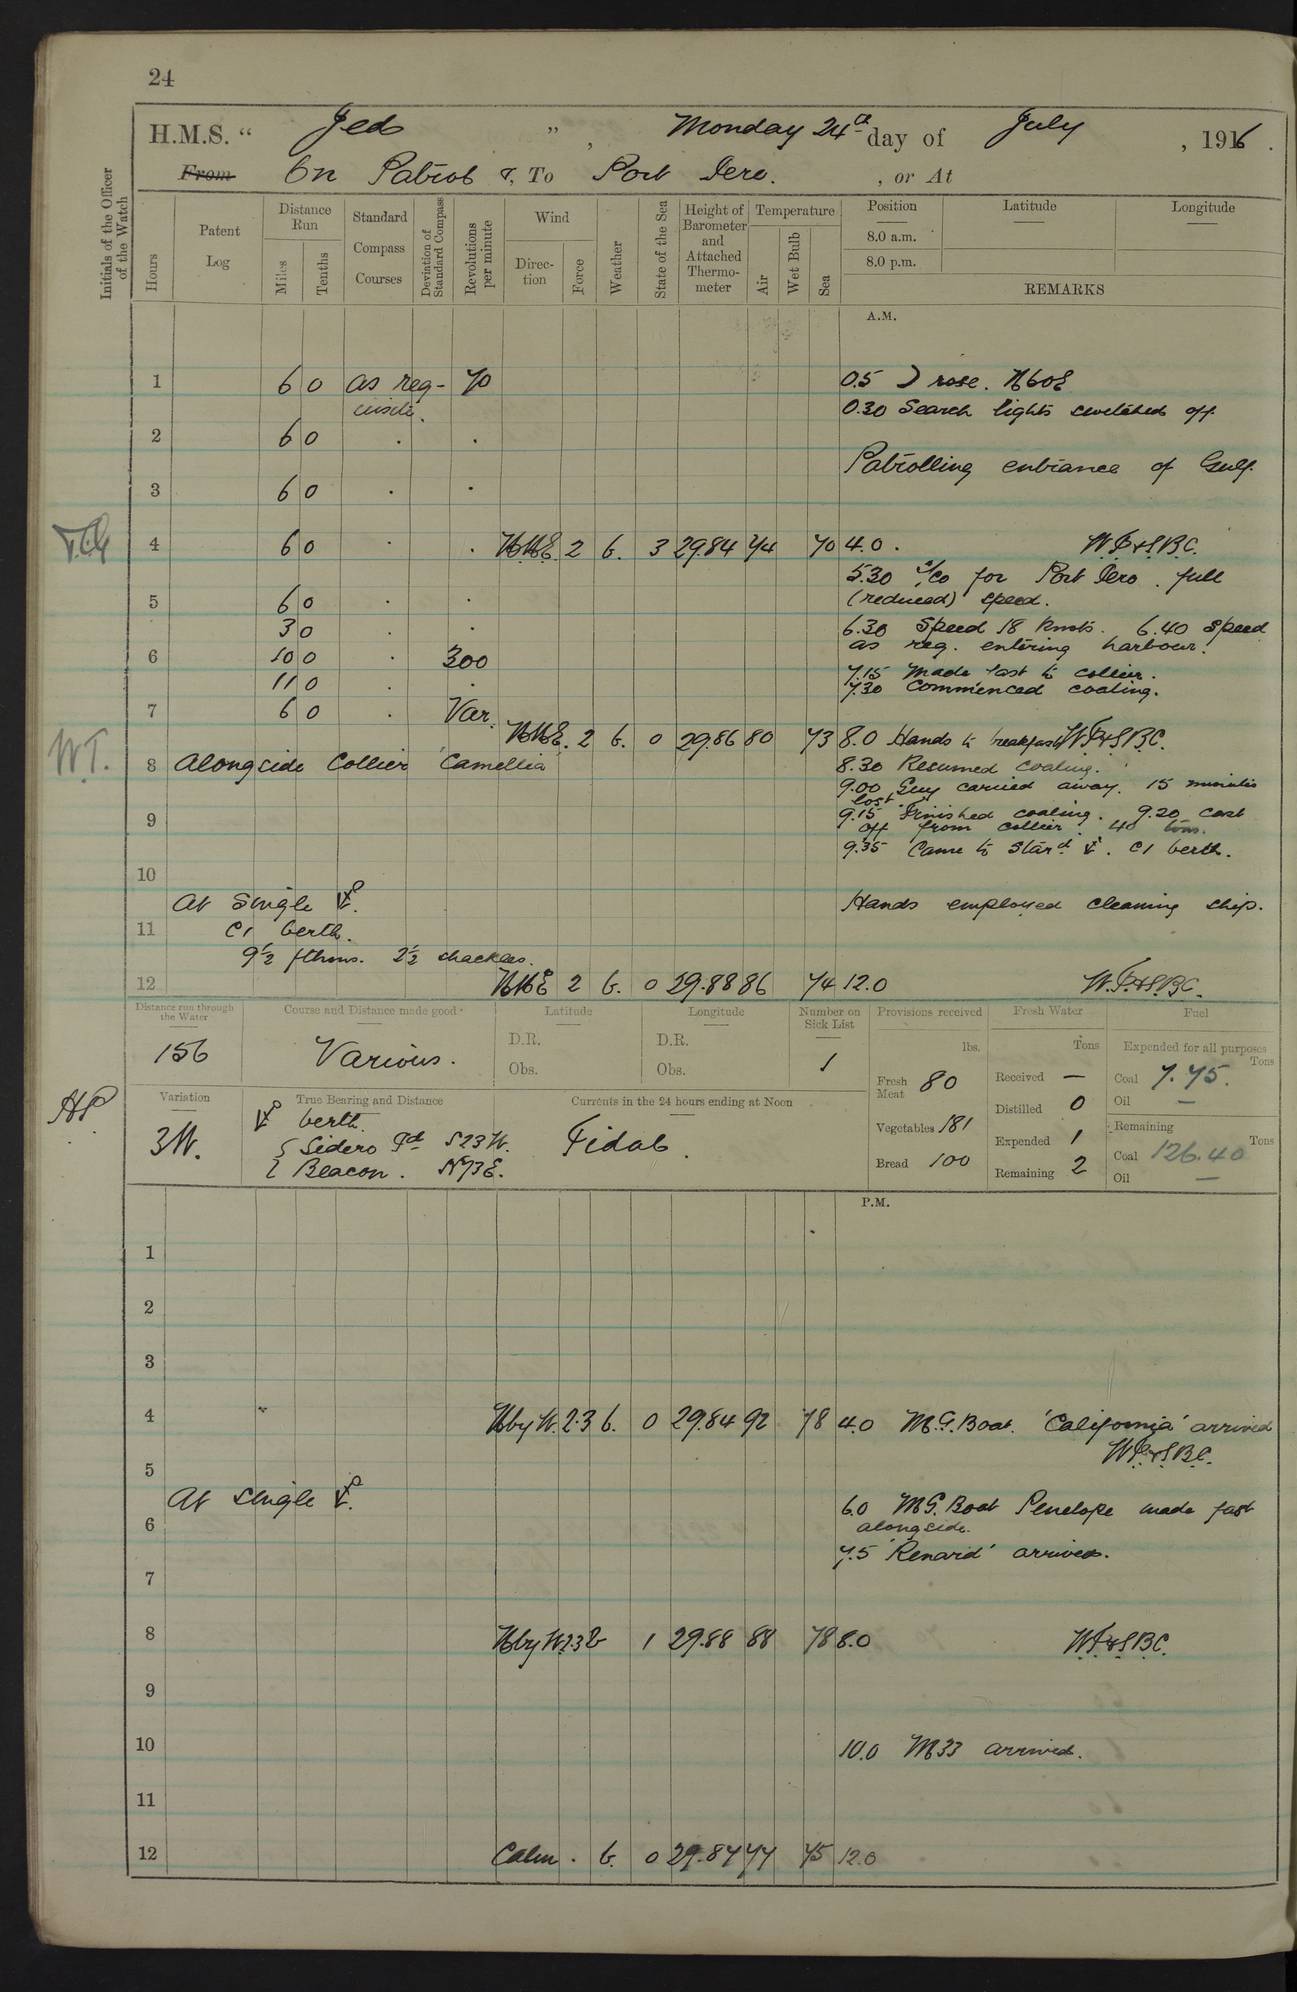 24
H.M.S. “ Jed ” , Monday 24th day of July , 1916 .
From On Patrol &, To Port Iero. , or At
Initials of the Officer of the Watch
Hours
Patent Log
Distance Run
Miles
Tenths
Standard Compass Courses
Deviation of Standard Compass
Revolutions per minute
Wind
Direction
Force
Weather
State of the Sea
Height of Barometer and Attached Thermometer
Temperature
Air
Wet Bulb
Sea
Position
8.0 a.m.
8.0 p.m.
Latitude
Longitude
REMARKS
A.M.
1 6 0 as req- 70 0.5 ☽ rose. N60E
uisite. 0.30 Search lights switched off.
2 6 0 . .
Patrolling entrance of Gulf.
3 6 0 . .
4 6 0 . . NNE 2 b. 3 29.84 74 70 4.0 .
5.30 c/co for Port Iero. full
5 6 0 . . (reduced) speed.
3 0 . . 6.30 Speed 18 knots. 6.40 Speed
6 10 0 . 300 as req. entering harbour.
11 0 . . 7.15 Made fast to collier.
7.30 Commenced coaling.
7 6 0 . Var.
NNE. 2 b. 0 29.86 80 73 8.0 Hands to breakfast
8 Alongside Collier 'Camellia' 8.30 Resumed coaling.
9.00 Guy carried away. 15 minutes
lost.
9 9.15 Finished coaling. 9.20 cast
off from collier. 40 tons.
9.35 Came to Starbd ⚓. C1 berth.
10
At Single ⚓. Hands employed cleaning ship.
11 C1 berth.
9½ fthms. 2½ shackles.
12 NNE 2 b. 0 29.88 86 74 12.0
Distance run through the Water
156
Course and Distance made good
Various.
Latitude
D.R.
Obs.
Longitude
D.R.
Obs.
Number on Sick List
1
Provisions received
lbs.
Fresh Meat 80
Vegetables 181
Bread 100
Fresh Water
Tons
Received —
Distilled 0
Expended 1
Remaining 2
Fuel
Expended for all purposes
Tons
Coal 7.75.
Oil —
Remaining
Tons
Coal 126.40
Oil —
Variation
3W.
True Bearing and Distance
⚓ berth.
{ Sidero Id S23W.
{ Beacon. N73E.
Currents in the 24 hours ending at Noon
Tidal.
P.M.
1
2
3
4 N by W. 2.3 b. 0 29.84 92 78 4.0 M.G. Boat. 'California' arrived
5
At single ⚓. 6.0 M.G. Boat Penelope made fast
6 alongside.
7.5 'Renard' arrived.
7
8 N by W 2.3 b 1 29.88 88 78 8.0
9
10 10.0 M33 arrived.
11
12 Calm . b. 0 29.87 77 75 12.0